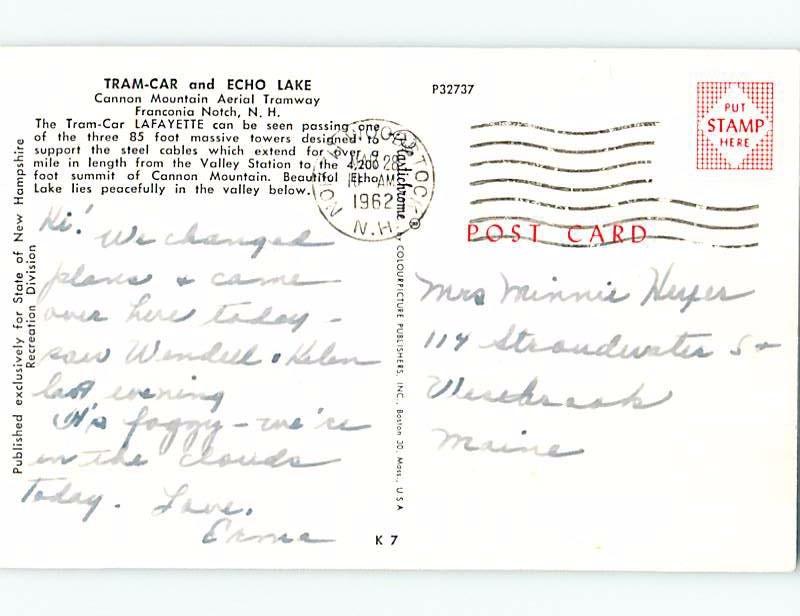 TRAM-CAR and ECHO LAKE
Cannon Mountain Aerial Tramway
Franconia Notch, N. H.
The Tram-Car LAFAYETTE can be seen passing one
of the three 85 foot massive towers designed to
support the steel cables which extend for over a
mile in length from the Valley Station to the 4,200
foot summit of Cannon Mountain. Beautiful Echo
Lake lies peacefully in the valley below.
Hi! We changed
plans & came
over here today -
saw Wendell & Helen
last evening
It's foggy - we're
in the clouds
today. Love,
Erma
Published exclusively for State of New Hampshire
Recreation Division
Plastichrome ® by COLOURPICTURE PUBLISHERS, INC., Boston 30, Mass., U.S.A
K 7
P32737
NORTH WOODSTOCK
28
AM
1962
N.H.
PUT
STAMP
HERE
POST CARD
Mrs Minnie Heyer
114 Stroudwater St
Westbrook
Maine